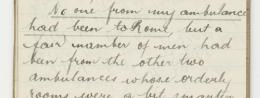 No one from my ambulance
had been to Rome, but a
fair number of men had
been from the other two
ambulances whose orderly
rooms were a bit smarter